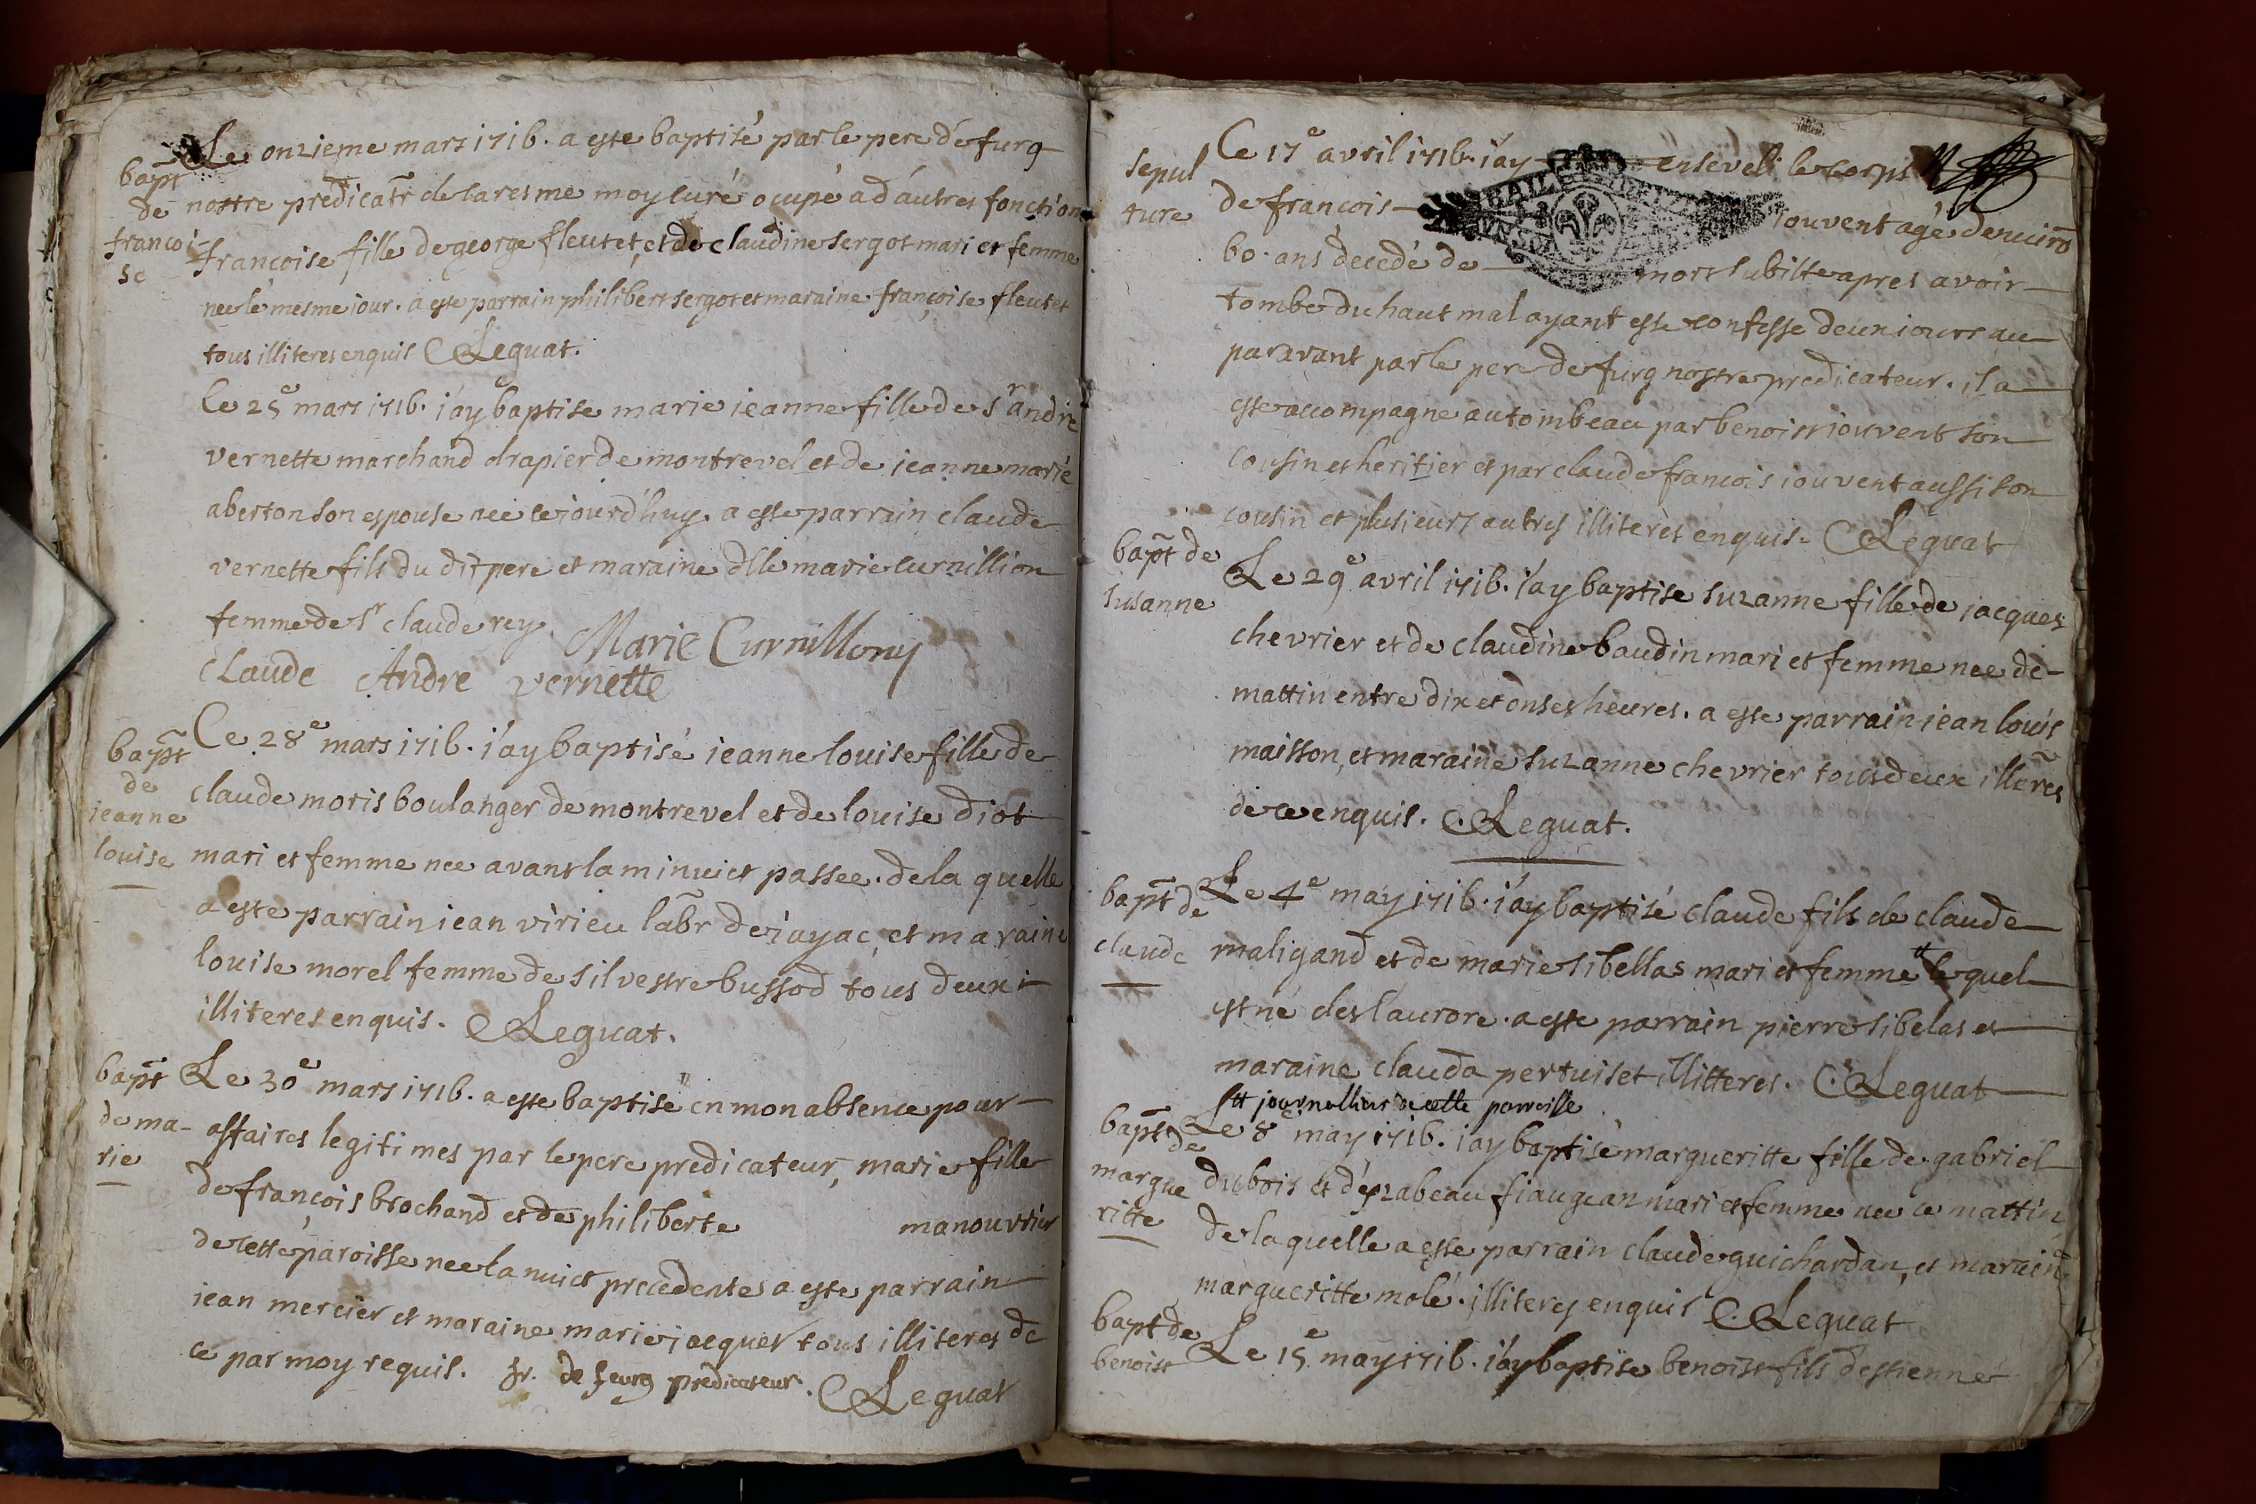 Le onzieme mars 1716. a este baptisé par le pere de furg
bapt de françoise
nostre predicatr de caresme moy curé ocupé a d'autres fonctions
françoise fille de george fleutet, et de claudine sergot mari et femme
nee le mesme jour. a este parrain philibert sergot et maraine françoise fleutet
tous illiteres enquis Leguat.
Ce 25e mars 1716. i'ay baptise marie ieanne fille de sr andre
vernette marchand drapier de montrevel et de ieanne marie
aberton son espouse nee cejourd'huy. a este parrain claude
vernette fils du dit pere et maraine dlle marie curnillion
femme de sr claude rey. Marie Curnillony
claude Andre vernette
bapt de ieanne louise
Ce 28e mars 1716. i'ay baptisé ieanne louise fille de
claude moris boulanger de montrevel et de louise diot
mari et femme nee avant la minuict passee. de la quelle
a este parrain iean virieu labr de iayac, et maraine
louise morel femme de silvestre bussod tous deux
illiteres enquis. Leguat.
bapt de marie
Le 30e mars 1716. a este baptisé en mon absence pour
affaires legitimes par le pere predicateur, marie fille
de françois brochand et de philiberte manouvrier
de cette paroisse nee la nuict precedente a este parrain
iean mercier et maraine marie jacquet tous illiteres de
ce par moy requis. fr. de feurg predicateur. Leguat
sepulture
Ce 17e avril 1716. i'ay enseveli le corps
de françois iouvent agé denviro
60. ans decedé de mort subitte apres avoir
tombe du haut mal ayant este confesse deux iours au
paravant par le pere de furg nostre predicateur. il a
este accompagne au tombeau par benoist iouvent son
cousin et heritier et par claude françois iouvent aussi son
cousin et plusieurs autres illiteres enquis. Leguat
bapt de susanne
Le 29e avril 1716. i'ay baptise suzanne fille de jacques
chevrier et de claudine baudin mari et femme nee de
mattin entre dix et onses heures. a este parrain iean louis
maisson, et maraine suzanne chevrier tous deux illeres
de ce enquis. Leguat.
bapt de claude
Le 4e may 1716. i'ay baptisé claude fils de claude
maligand et de marie sibellas mari et femme le quel
est né des l'aurore. a este parrain pierre sibelas et
maraine clauda pertuiset illitteres. Leguat
journallier de cette parroisse
bapt de margueritte
Le 8 may 1716. i'ay baptisé margueritte fille de gabriel
dubois et d'yzabeau fiaugean mari et femme nee ce mattin
de la quelle a este parrain claude guichardan, et maraine
margueritte molé. illiteres enquis Leguat
bapt de benoist
Le 15e may 1716. i'ay baptise benoist fils destienne